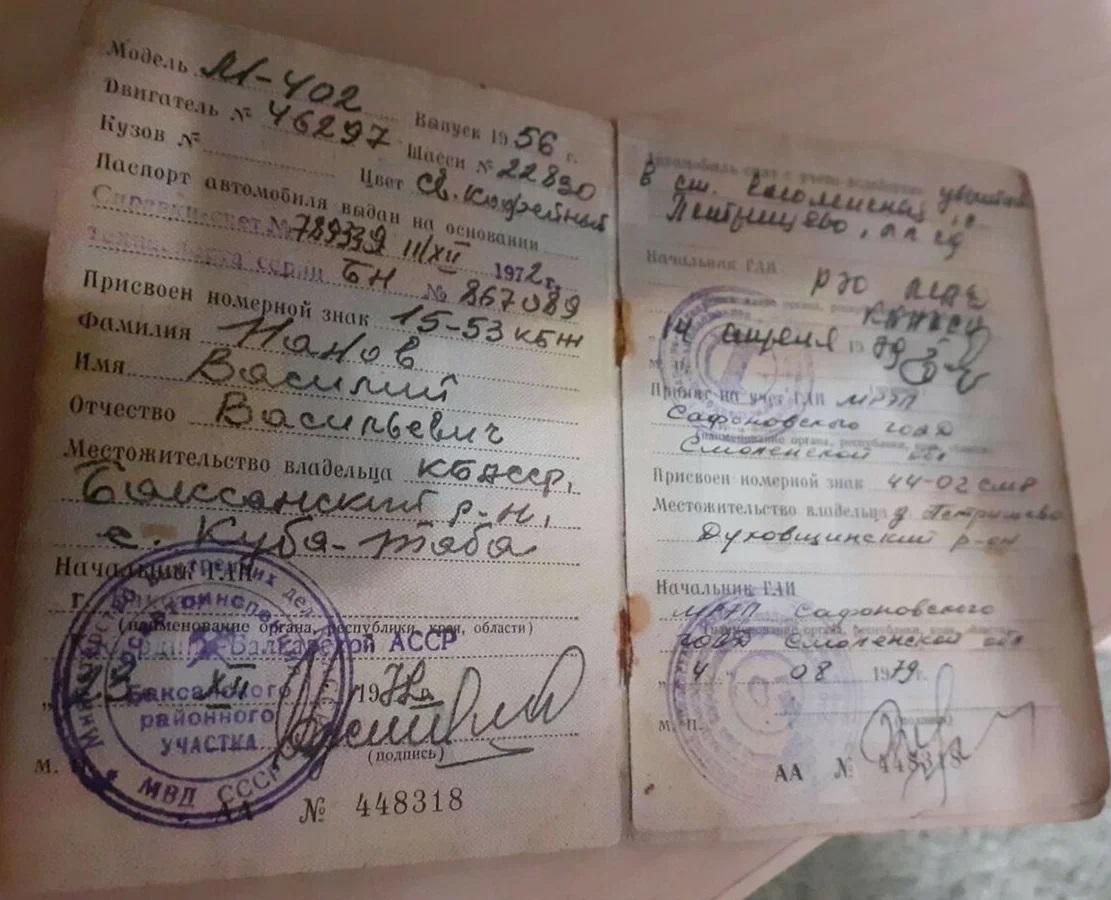 Модель М-402 Выпуск 1956 г.
Двигатель № 46297 Шасси № 22830
Кузов № Цвет св. кофейный
Паспорт автомобиля выдан на основании
Справки-счет № 789339 III/XII 1972 г.
Техпаспорта серии БН № 867089
Присвоен номерной знак 15-53 КБЖ
Фамилия Панов
Имя Василий
Отчество Васильевич
Местожительство владельца КБАССР,
Баксанский р-н,
с. Куба-Таба
Начальник ГАИ
(наименование органа, республики, края, области)
Кабардино-Балкарской АССР
XII 1972
(подпись)
Баксанского
районного
УЧАСТКА
МВД СССР
М.
АА № 448318
Автомобиль снят с учета
в см.
Начальник ГАИ РЭО
14 апреля 1979
Принят на учет ГАИ МРЭП
Сафоновского ГОВД
Смоленской обл
Присвоен номерной знак 44-02 смр
Местожительство владельца д.
Духовщинский р-он
Начальник ГАИ
МРЭП Сафоновского
ГОВД Смоленской обл
4 08 1979 г.
(подпись)
М. П.
АА № 448318